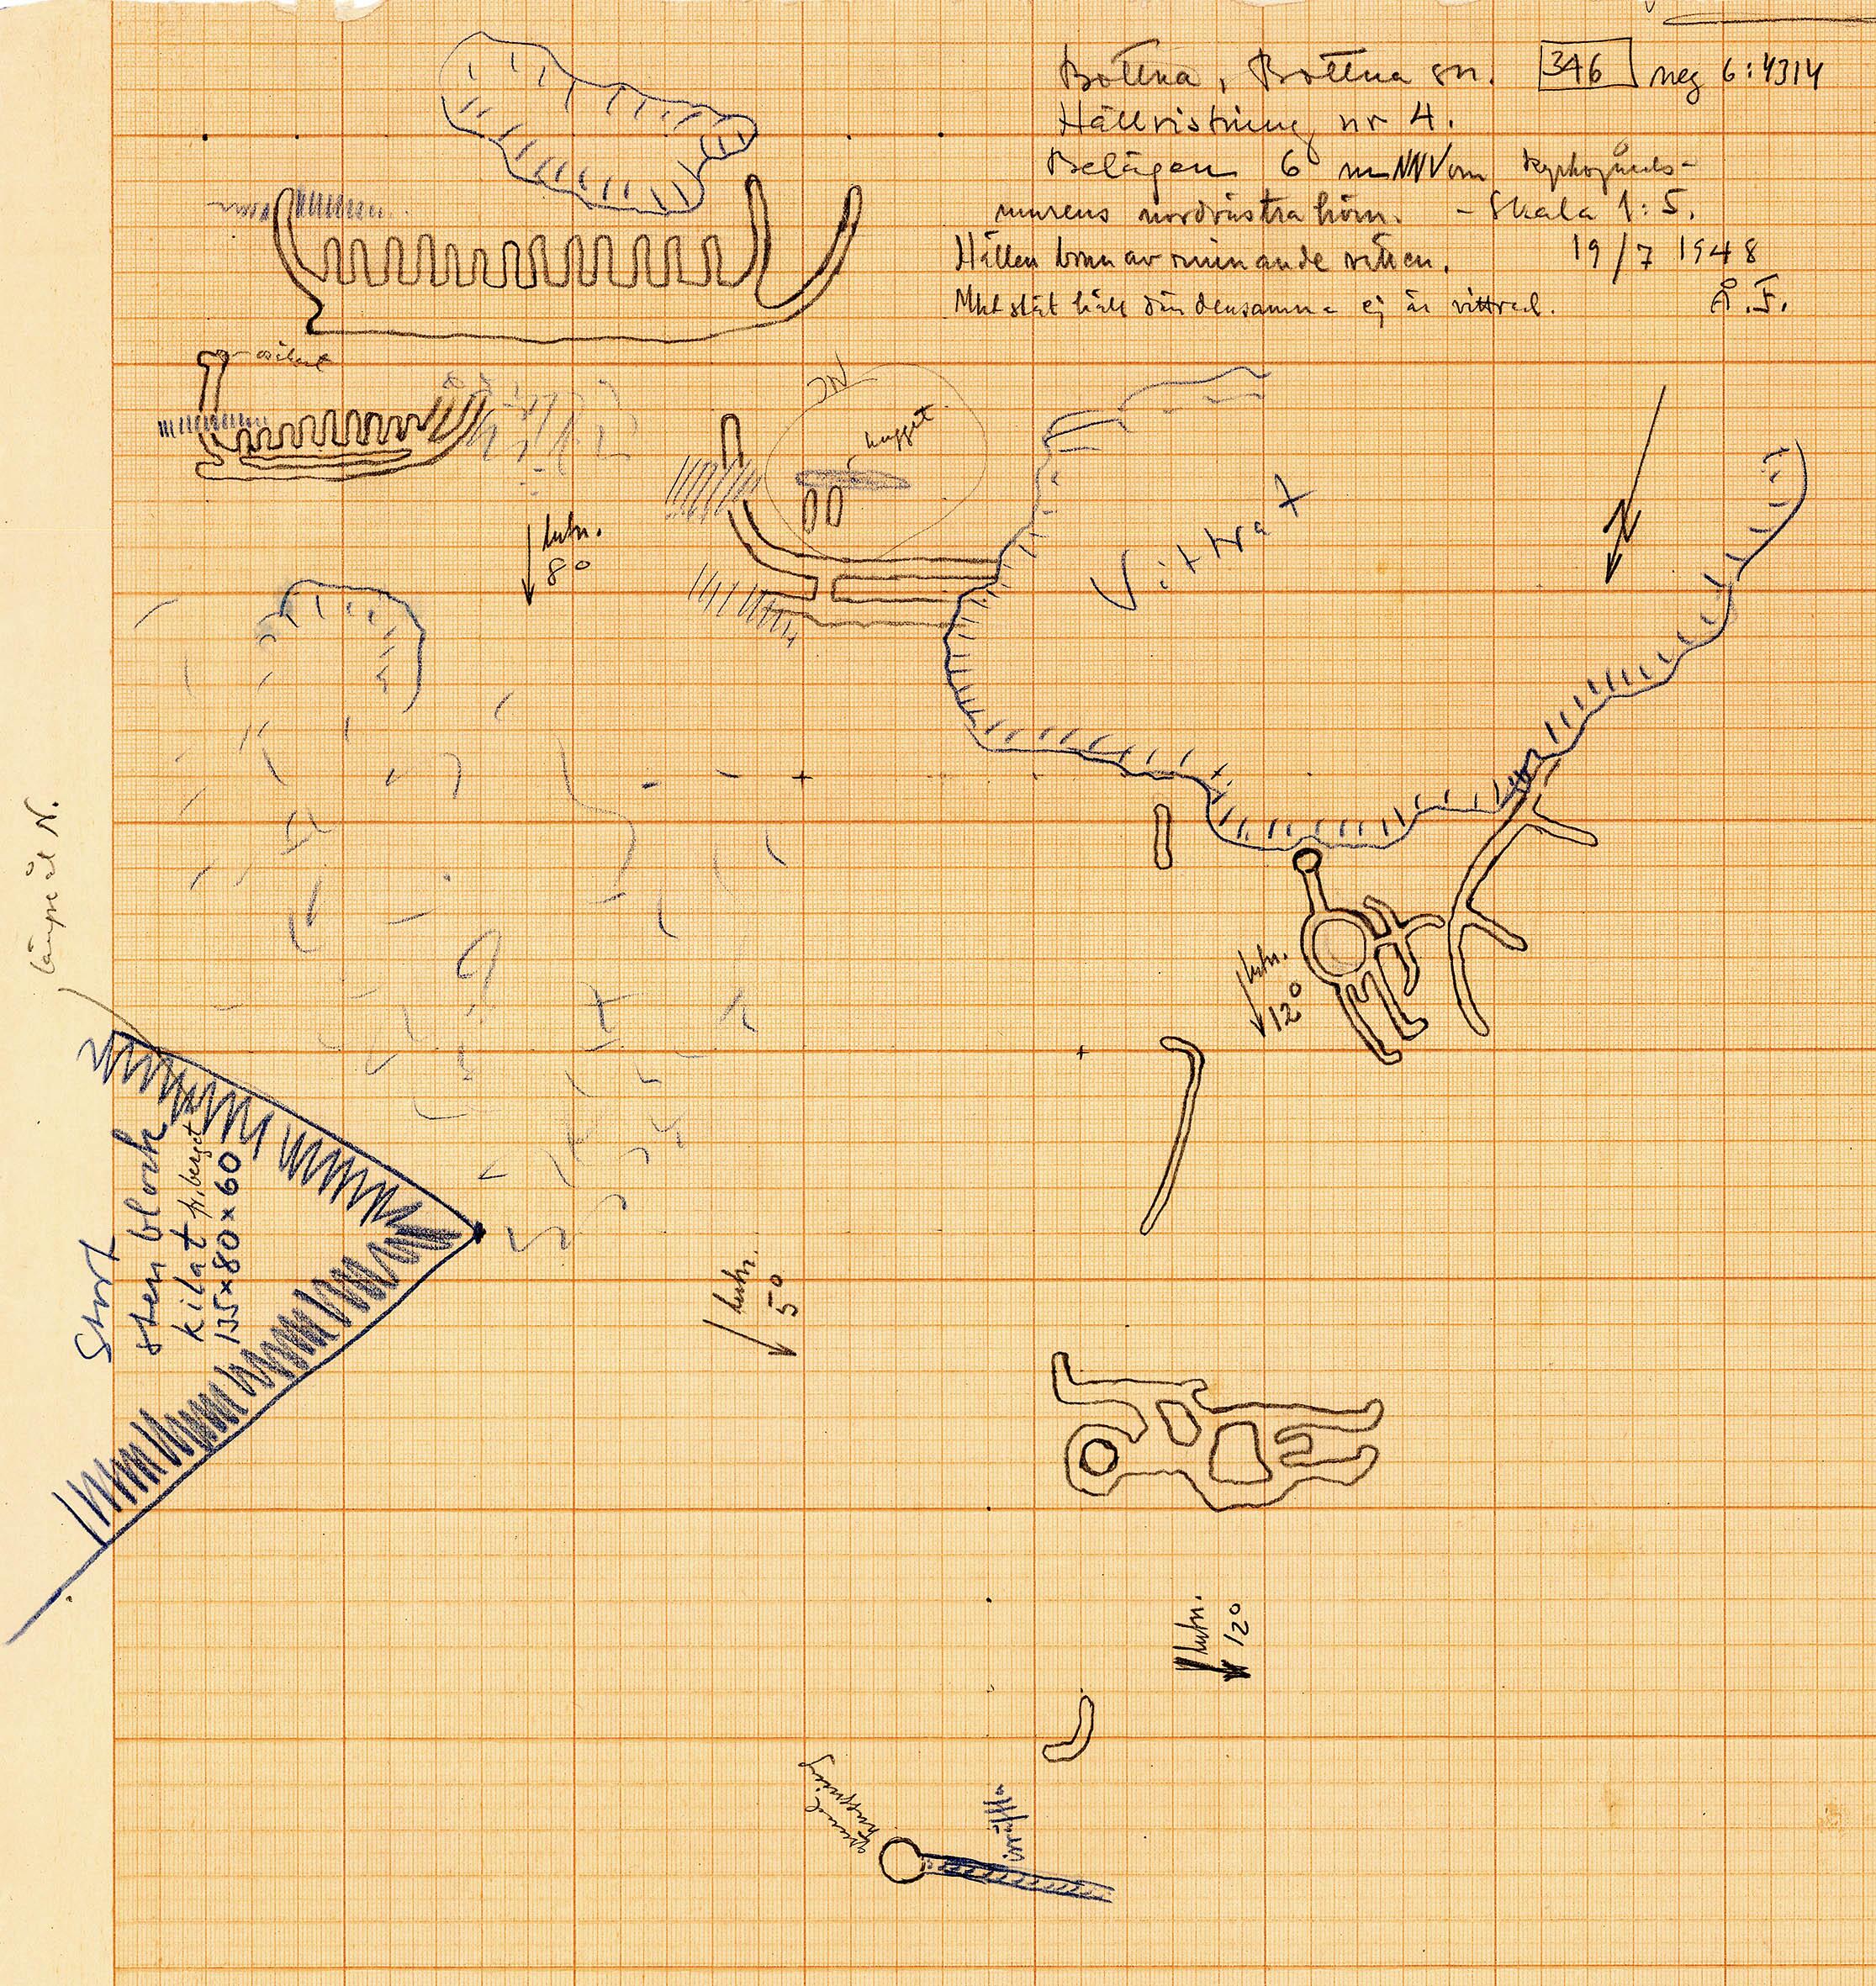 Bottna, Bottna sn. 346 neg 6:4314
Hällristning nr 4.
Belägen 6 m NNV om kyrkogårds-
murens nordvästra hörn. - Skala 1:5.
Hällen brun av rinnande vatten. 19/7 1948
Mkt slät häll där densamma ej är vittrad. Å.F.
osäkert
hugget
lutn.
80
Vittrat
N
lutn.
12°
Stort
stenblock
kilat fr. berget
135×80×60
lutn.
50
lutn.
12°